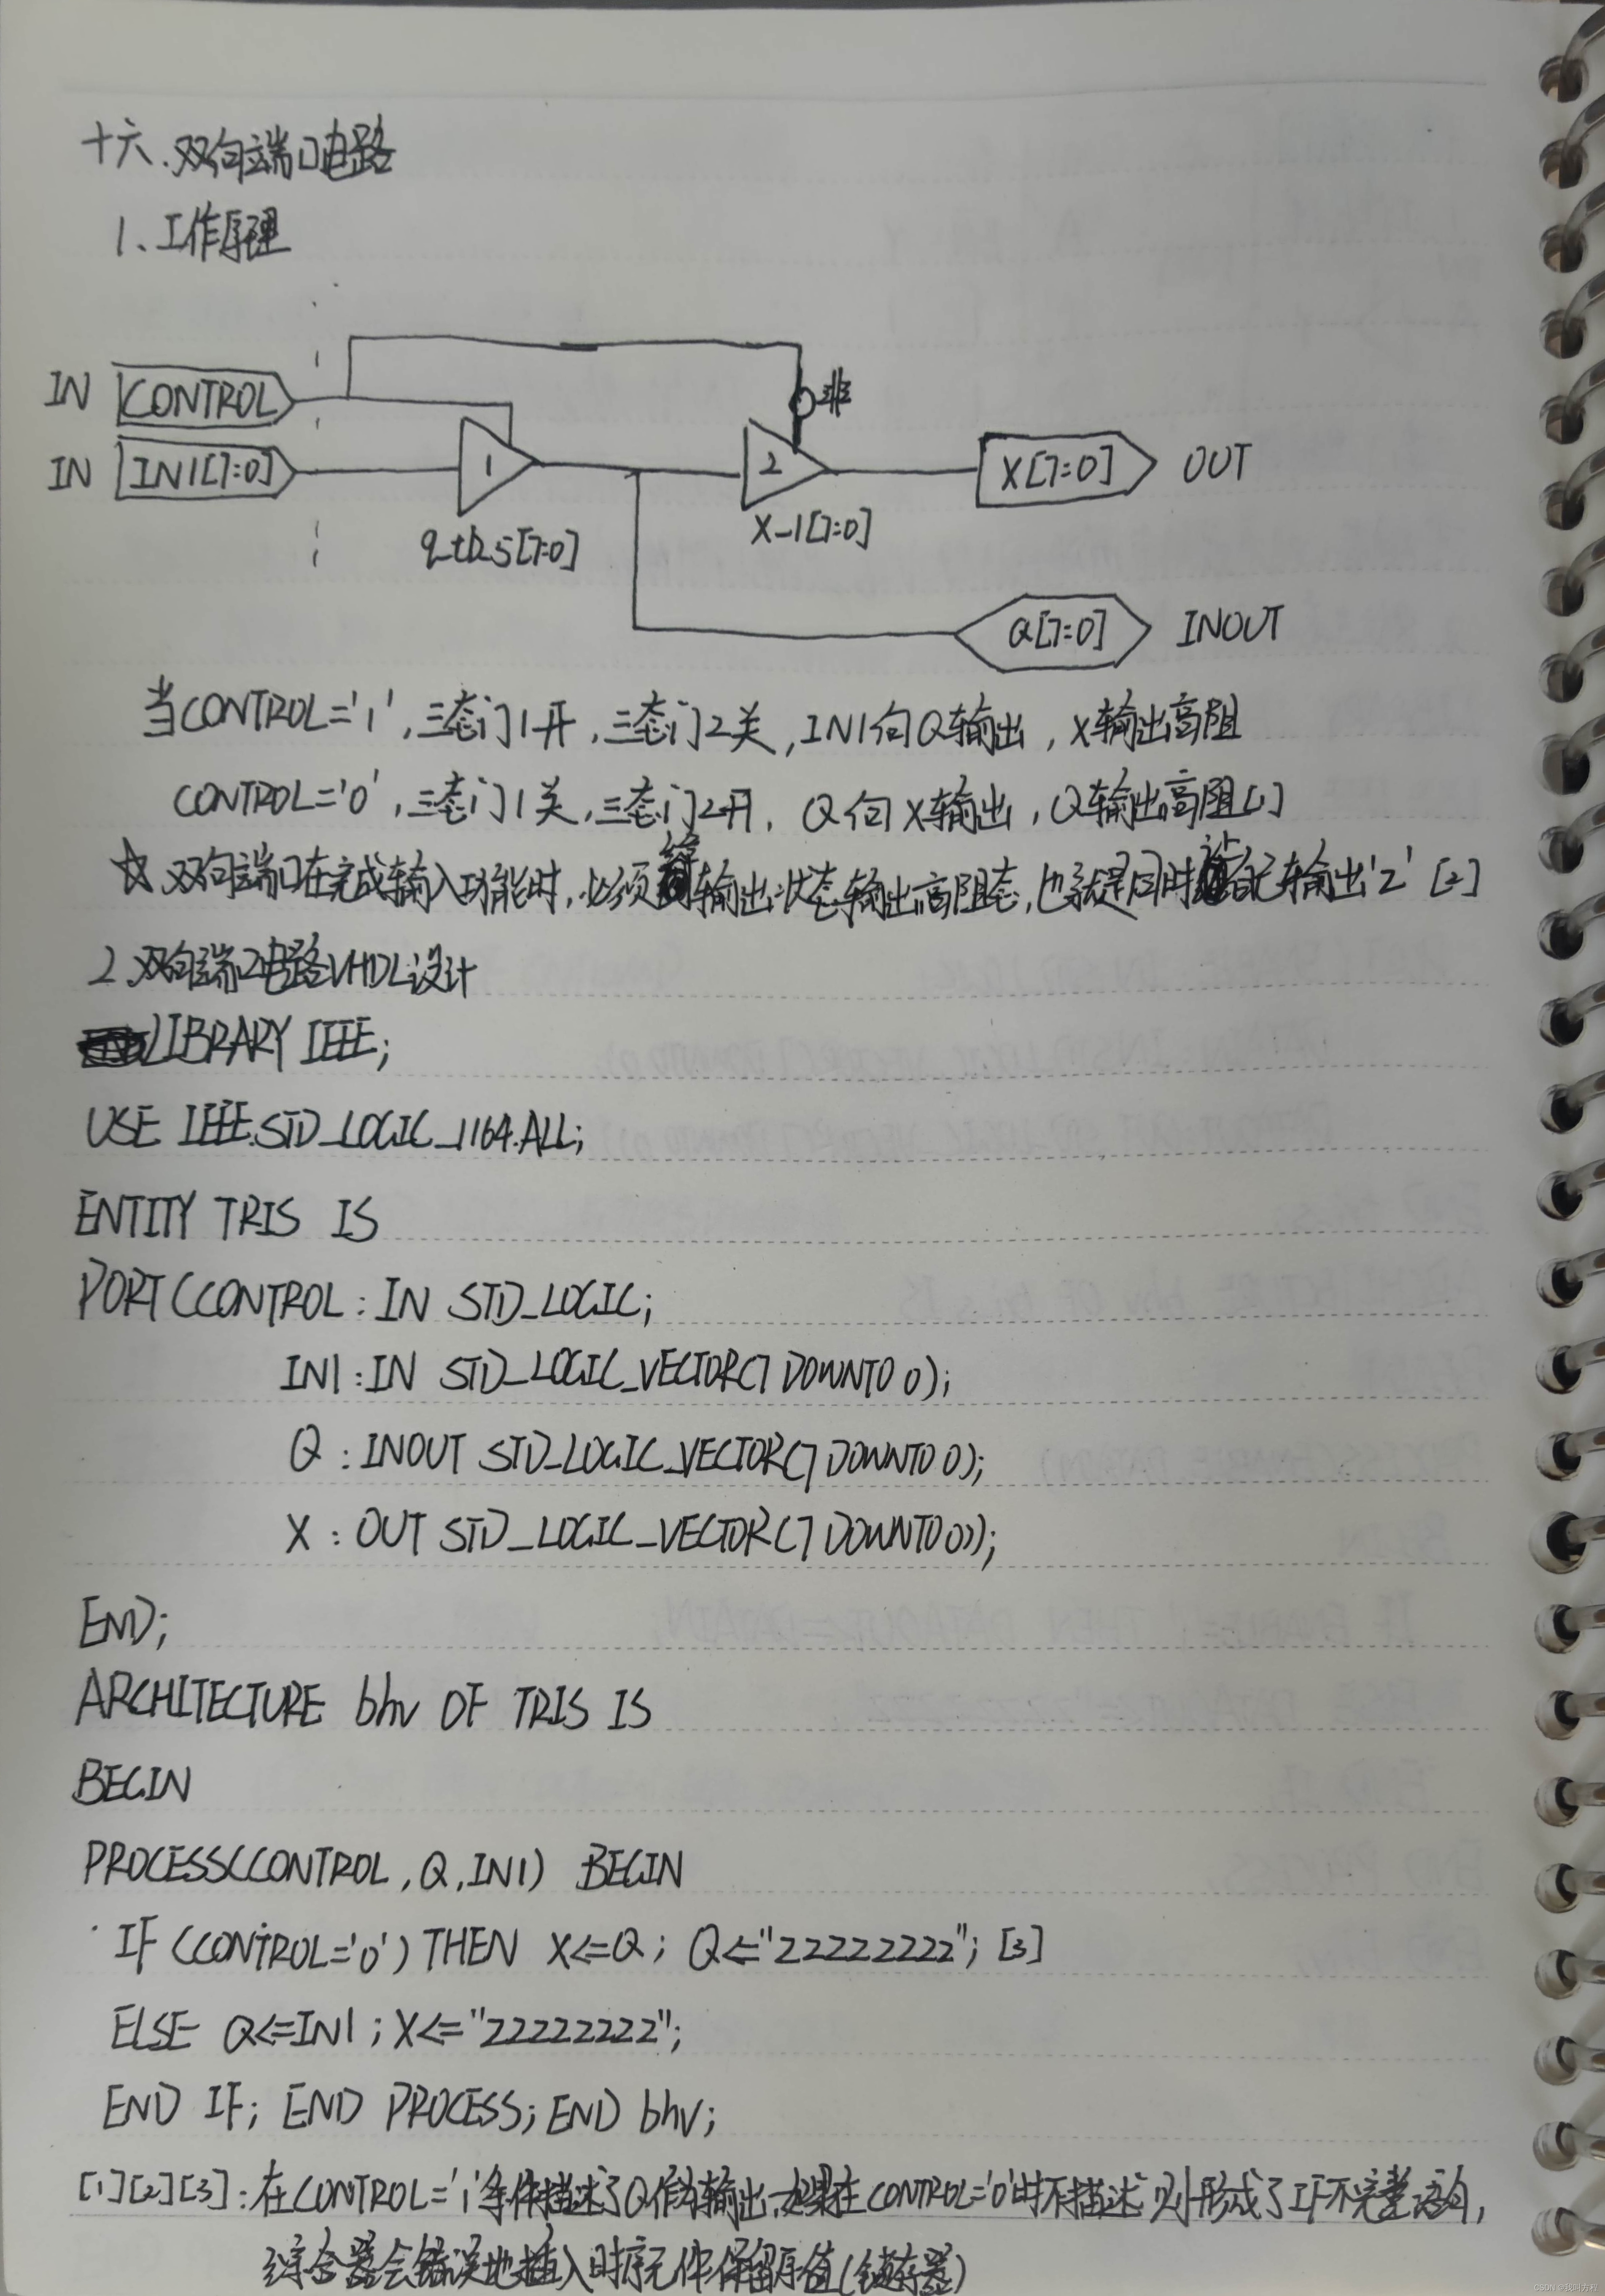 十六、双向端口电路
1、工作原理
非
IN CONTROL
IN IN1[7:0] 1 2 X[7:0] OUT
q_tb_5[7:0] X-1[7:0]
Q[7:0] INOUT
当CONTROL='1',三态门1开,三态门2关,IN1向Q输出,X输出高阻
CONTROL='0',三态门1关,三态门2开,Q向X输出,Q输出高阻[1]
☆双向端口在完成输入功能时,必须 输出状态输出高阻态,也就是同时 输出'Z' [2]
2、双向端口电路VHDL设计
LIBRARY IEEE;
USE IEEE.STD_LOGIC_1164.ALL;
ENTITY TRIS IS
PORT(CONTROL:IN STD_LOGIC;
IN1:IN STD_LOGIC_VECTOR(7 DOWNTO 0);
Q:INOUT STD_LOGIC_VECTOR(7 DOWNTO 0);
X:OUT STD_LOGIC_VECTOR(7 DOWNTO 0));
END;
ARCHITECTURE bhv OF TRIS IS
BEGIN
PROCESS(CONTROL,Q,IN1) BEGIN
IF (CONTROL='0') THEN X<=Q; Q<="ZZZZZZZZ"; [3]
ELSE Q<=IN1; X<="ZZZZZZZZ";
END IF; END PROCESS; END bhv;
[1][2][3]:在CONTROL='1'条件描述了Q作为输出,如果在CONTROL='0'时不描述,则形成了IF不完整语句,
综合器会错误地插入时序元件保留原值(锁存器)
CSDN @我叫方程